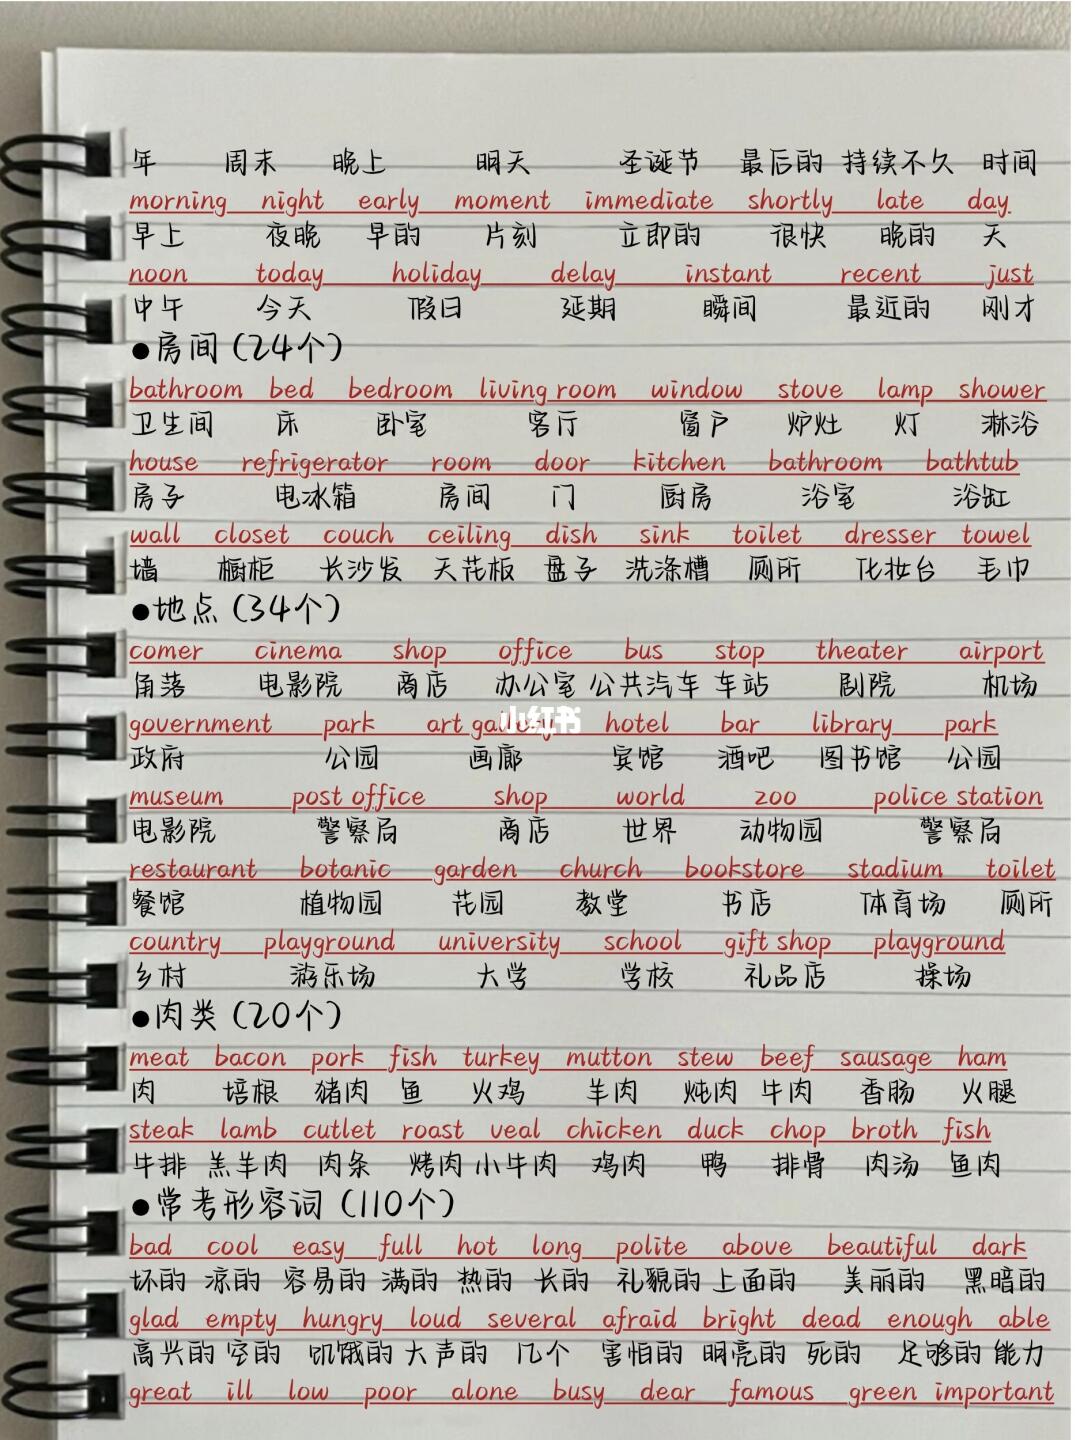 年 周末 晚上 明天 圣诞节 最后的 持续不久 时间
morning night early moment immediate shortly late day
早上 夜晚 早的 片刻 立即的 很快 晚的 天
noon today holiday delay instant recent just
中午 今天 假日 延期 瞬间 最近的 刚才
●房间(24个)
bathroom bed bedroom living room window stove lamp shower
卫生间 床 卧室 客厅 窗户 炉灶 灯 淋浴
house refrigerator room door kitchen bathroom bathtub
房子 电冰箱 房间 门 厨房 浴室 浴缸
wall closet couch ceiling dish sink toilet dresser towel
墙 橱柜 长沙发 天花板 盘子 洗涤槽 厕所 化妆台 毛巾
●地点(34个)
comer cinema shop office bus stop theater airport
角落 电影院 商店 办公室 公共汽车 车站 剧院 机场
government park art gallery hotel bar library park
小红书
政府 公园 画廊 宾馆 酒吧 图书馆 公园
museum post office shop world zoo police station
电影院 警察局 商店 世界 动物园 警察局
restaurant botanic garden church bookstore stadium toilet
餐馆 植物园 花园 教堂 书店 体育场 厕所
country playground university school gift shop playground
乡村 游乐场 大学 学校 礼品店 操场
●肉类(20个)
meat bacon pork fish turkey mutton stew beef sausage ham
肉 培根 猪肉 鱼 火鸡 羊肉 炖肉 牛肉 香肠 火腿
steak lamb cutlet roast veal chicken duck chop broth fish
牛排 羔羊肉 肉条 烤肉 小牛肉 鸡肉 鸭 排骨 肉汤 鱼肉
●常考形容词(110个)
bad cool easy full hot long polite above beautiful dark
坏的 凉的 容易的 满的 热的 长的 礼貌的 上面的 美丽的 黑暗的
glad empty hungry loud several afraid bright dead enough able
高兴的 空的 饥饿的 大声的 几个 害怕的 明亮的 死的 足够的 能力
great ill low poor alone busy dear famous green important